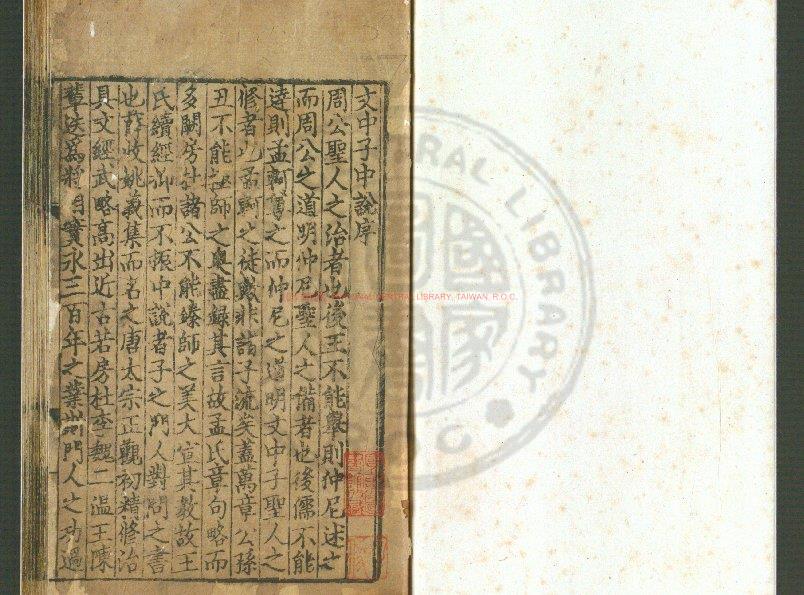 文中子中說序
周公聖人之治者也後王不能舉則仲尼述之
而周公之道明仲尼聖人之備者也後儒不能
達則孟軻尊之而仲尼之道明文中子聖人之
修者也孟軻之徒歟非諸子流矣蓋萬章公孫
丑不能極師之奧盡錄其言故孟氏章句略而
多闕房杜諸公不能臻師之美大宣其敎故王
氏續經抑而不振中說者子之門人對問之書
也薛收姚義集而名之唐太宗正觀初精修治
具文經武略高出近古若房杜李魏二溫王陳
輩迭爲將相實永三百年之業斯門人之功過
CENTRAL LIBRARY, TAIWAN, R.O.C.
RAL LIBRARY
國家
圖書
R O C